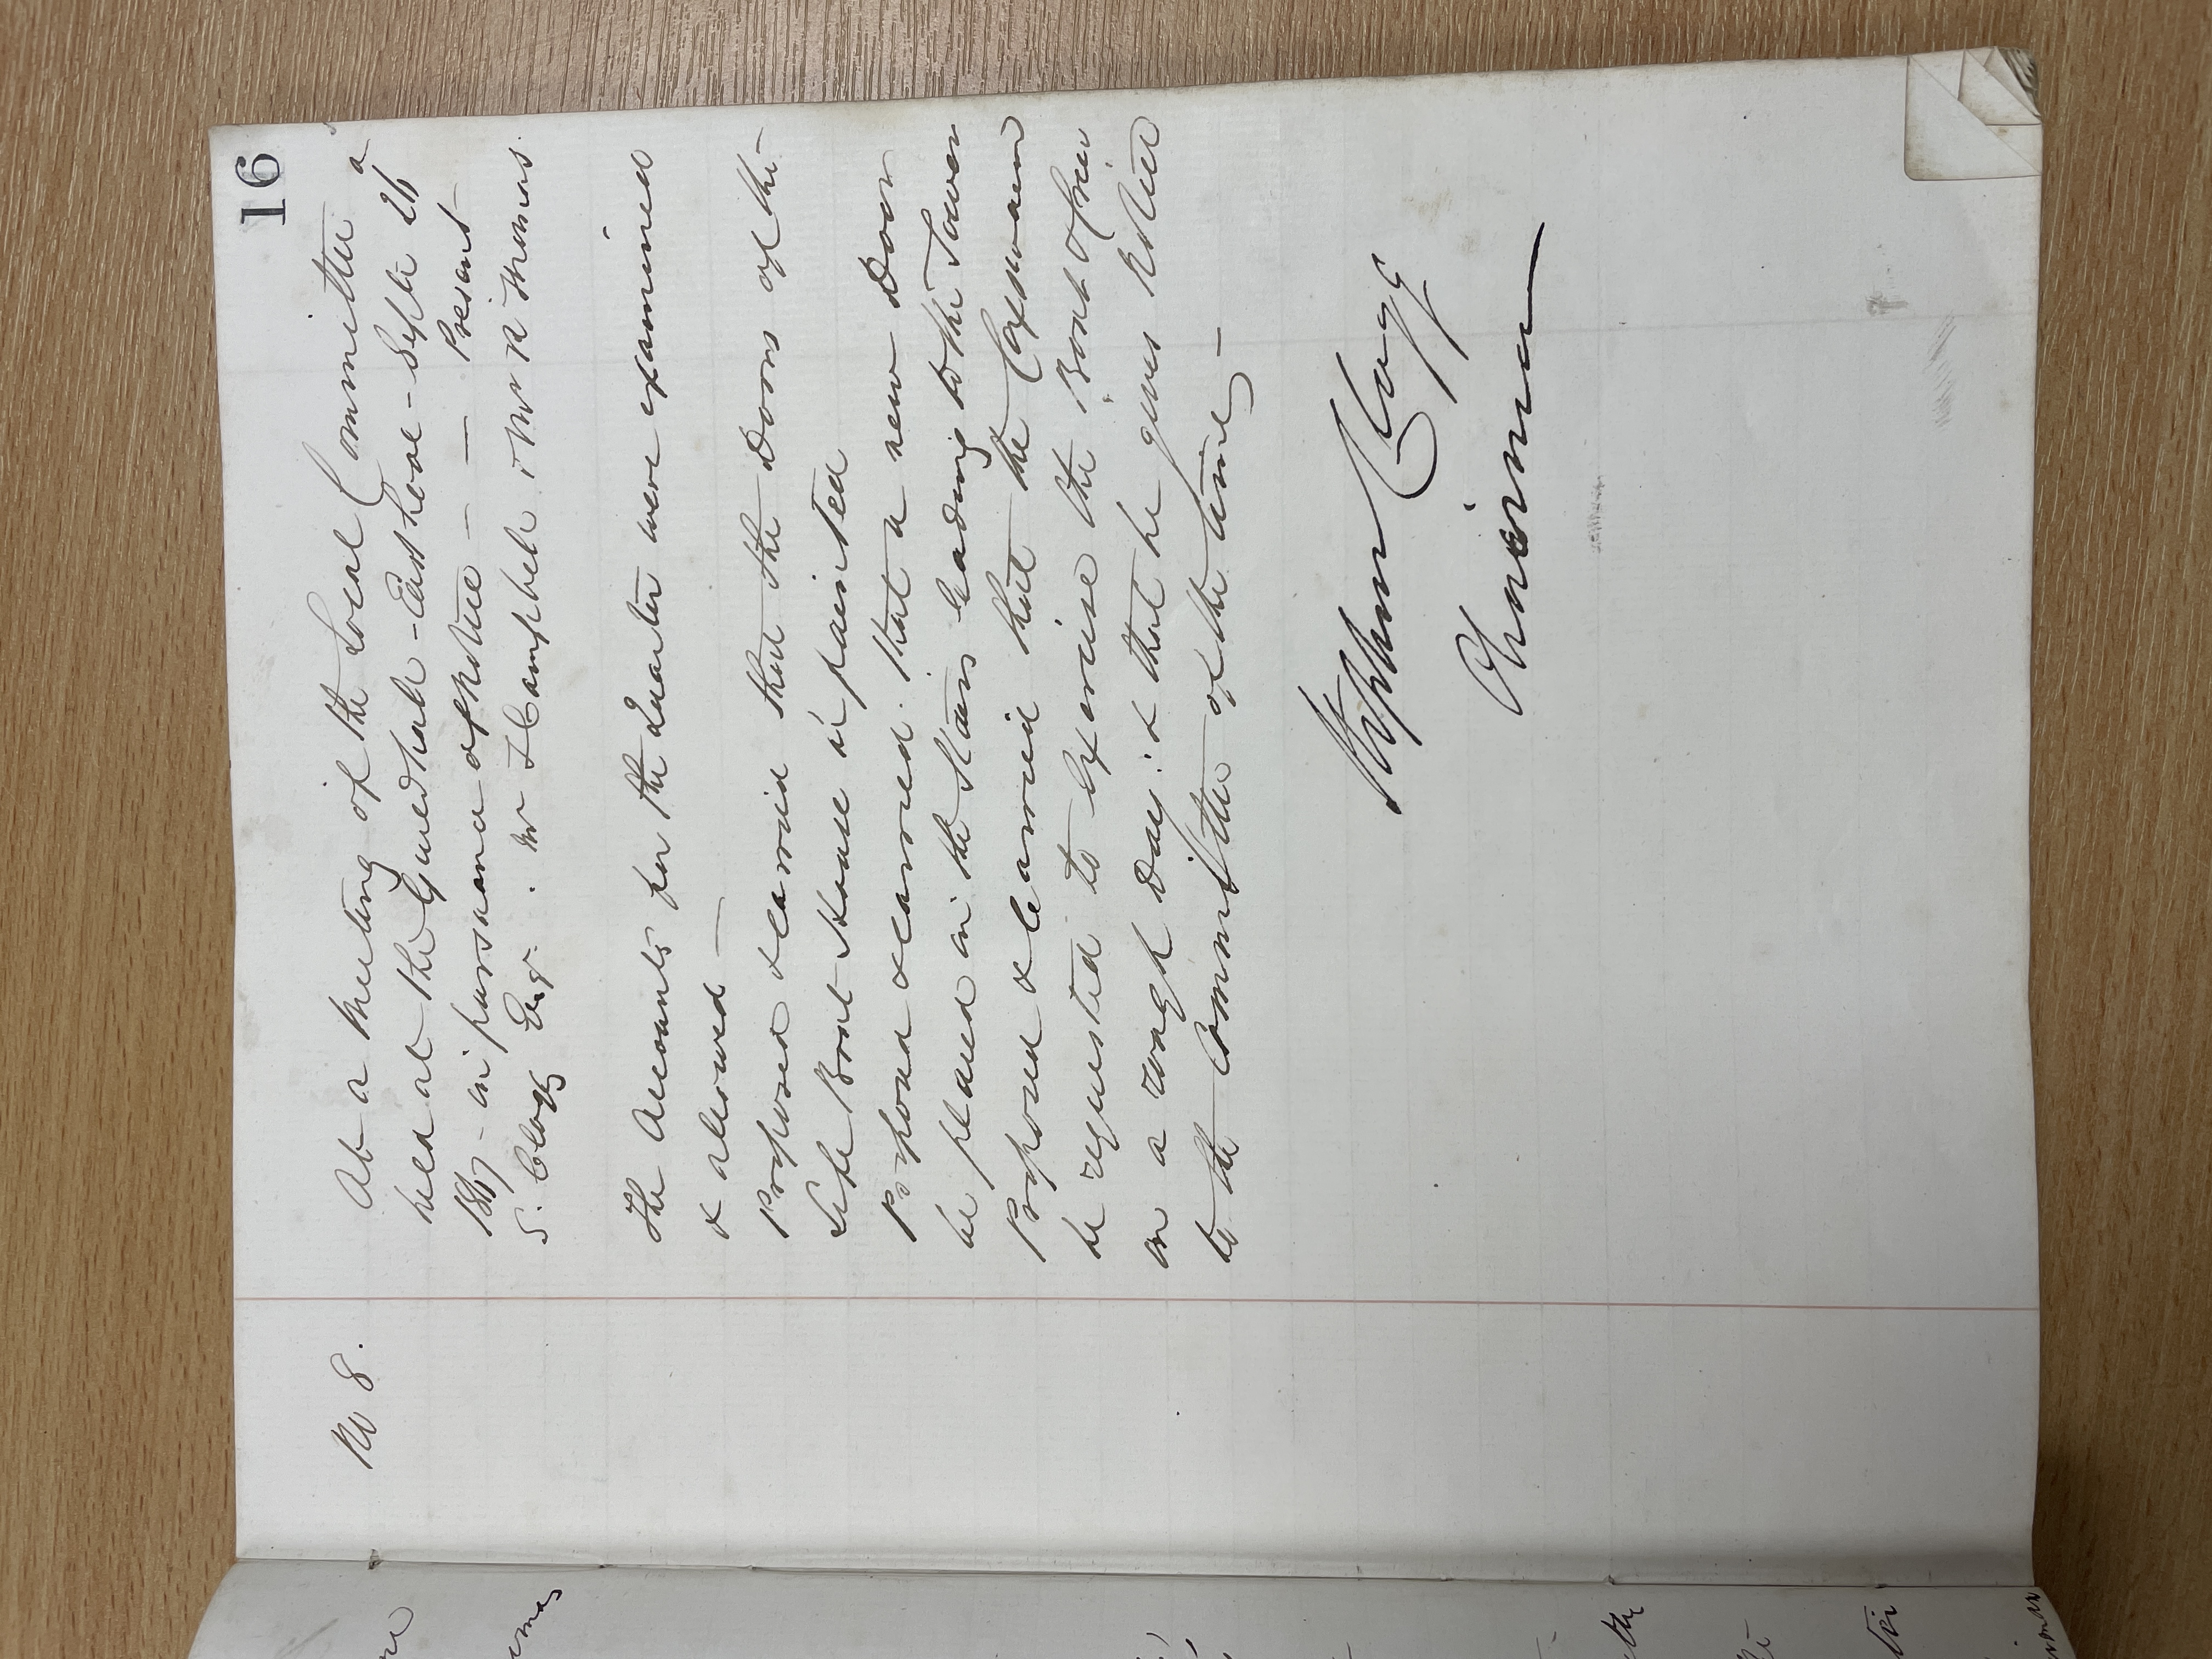 16
No 8.
At a Meeting of the Local Committee a
held at the Guildhall - East Looe - Sept 26
in pursuance of Notice - — Present
S. Clogg Esqr. Mr T Campbell & Mr R Thomas.
The Accounts for the Quarter were examined
& allowed —
Proposed & carried that the Doors of the
Life Boat House be painted
Proposed & carried. that a new Door
be placed in the Stairs leading to the Tower
Proposed & carried that the Coxswain
be requested to Exercise the Boat of her
on a rough Day: & that he gives Notice
to the Committee of the time —
Stephen Clogg
Chairman
the